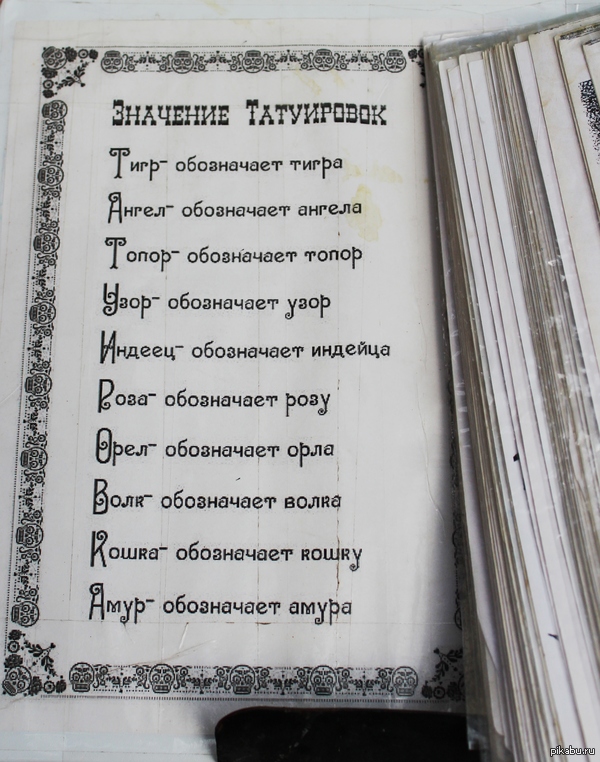 Значение Татуировок
Тигр- обозначает тигра
Ангел- обозначает ангела
Топор- обозначает топор
Узор- обозначает узор
Индеец- обозначает индейца
Роза- обозначает розу
Орел- обозначает орла
Волк- обозначает волка
Кошка- обозначает кошку
Амур- обозначает амура
pikabu.ru